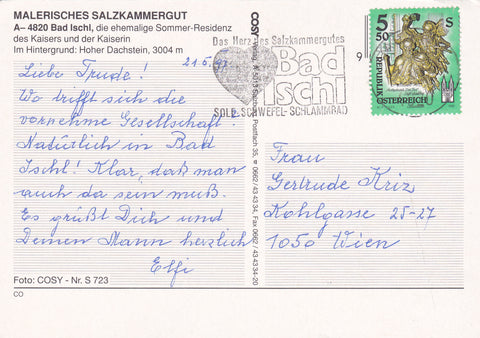 MALERISCHES SALZKAMMERGUT
A– 4820 Bad Ischl, die ehemalige Sommer-Residenz
des Kaisers und der Kaiserin
Im Hintergrund: Hoher Dachstein, 3004 m
21.6.
Liebe Trude!
Wo trifft sich die
vornehme Gesellschaft?
Natürlich in Bad
Ischl! Klar, daß man
auch da sein muß.
Es grüßt Dich und
Deinen Mann herzlich
Elfi
Foto: COSY - Nr. S 723
CO
COSY - Verlag, A- 5013 Salzburg, Postfach 35, ✆ 0662 / 43 43 34, Fax 0662 / 43 43 34-20
Das Herz des Salzkammergutes
Bad
Ischl
SOLE-SCHWEFEL-SCHLAMMBAD
9
5 50 S
REPUBLIK
ÖSTERREICH
Frau
Gertrude Kriz
Kohlgasse 25-27
1050 Wien